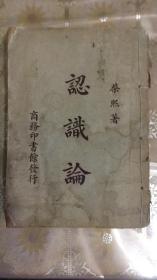 黎熙著
認識論
商務印書館發行